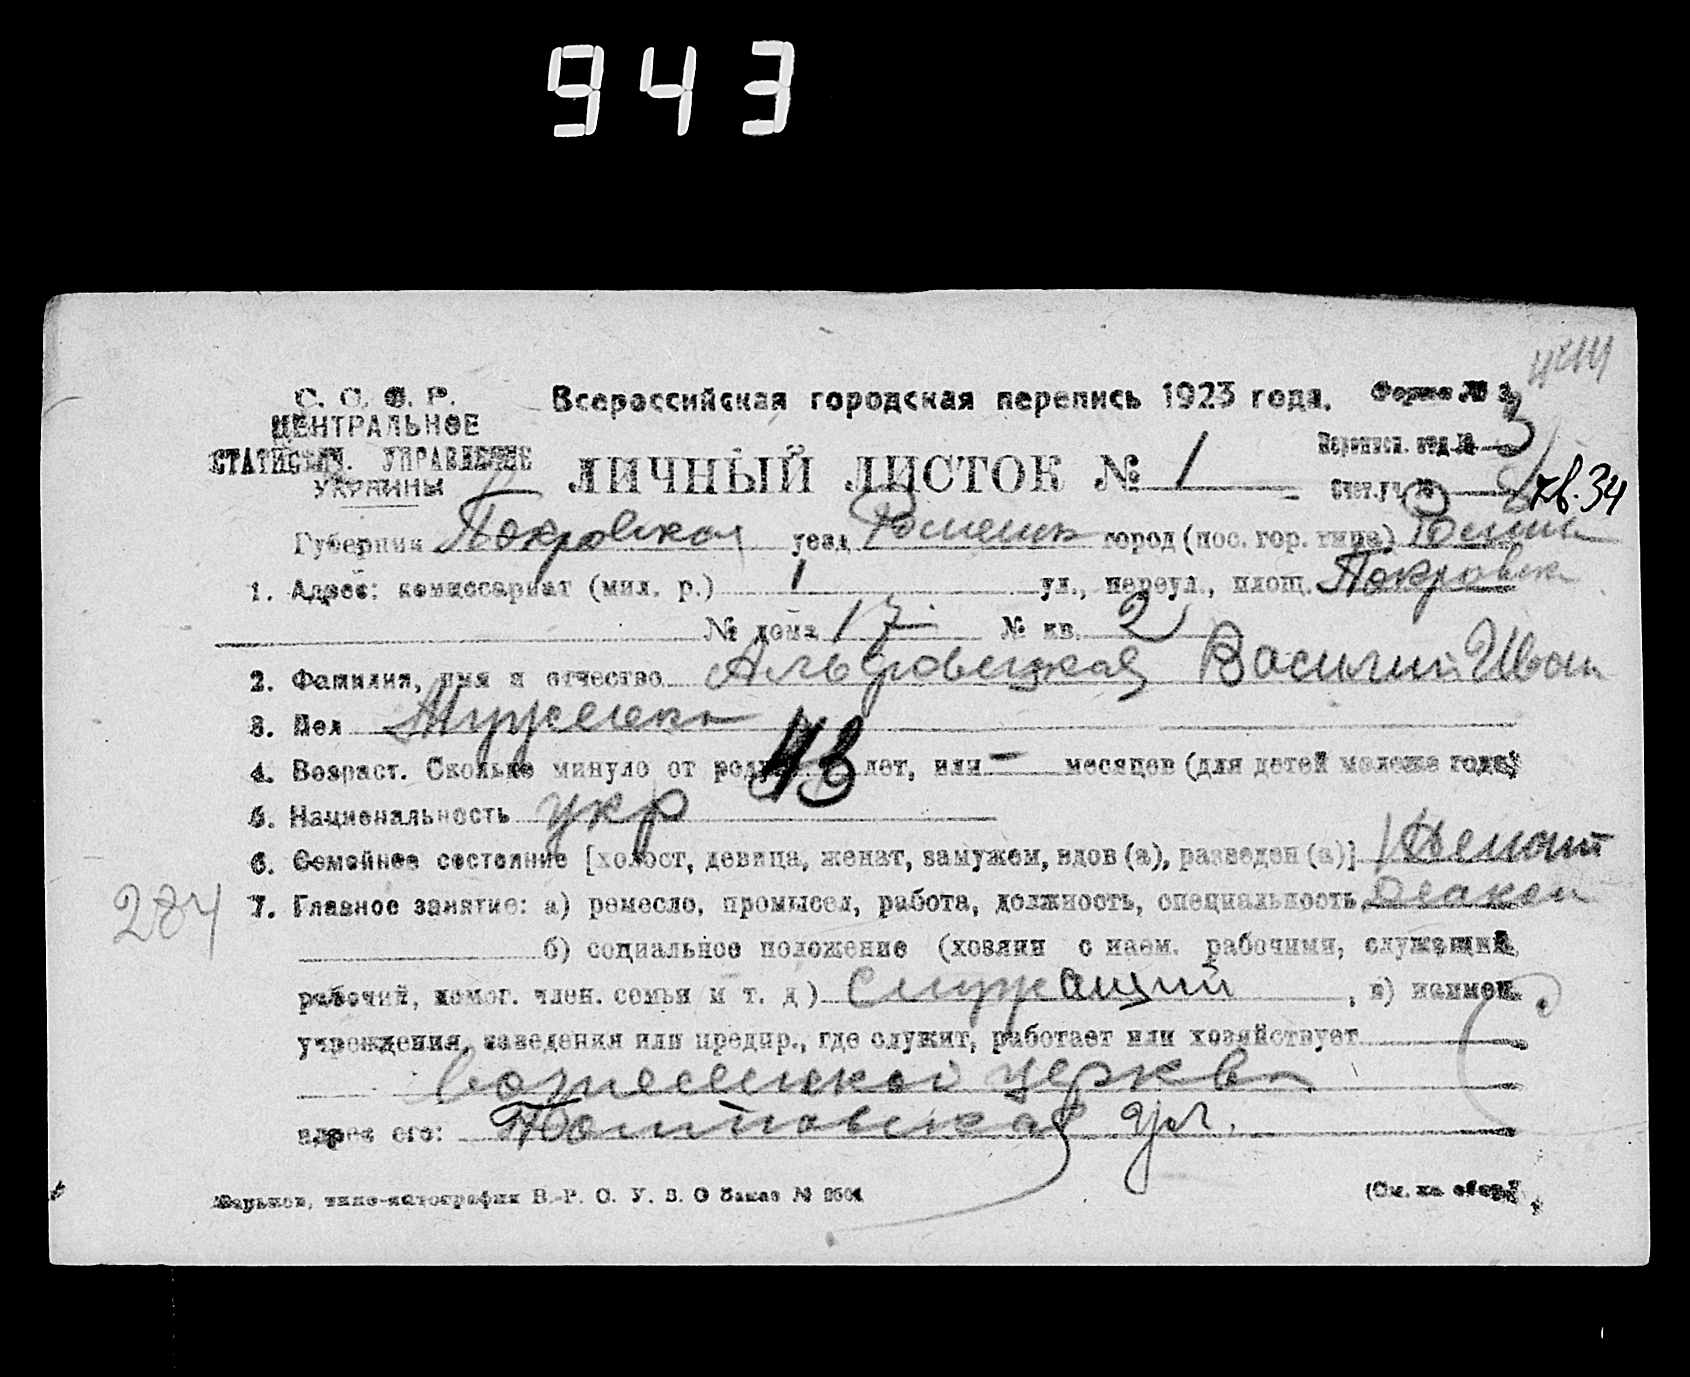 943
С. С. С. Р.
ЦЕНТРАЛЬНОЕ
СТАТИСТИЧ. УПРАВЛЕНИЕ
УКРАИНЫ
Всероссийская городская перепись 1923 года.
Форма №
ЛИЧНЫЙ ЛИСТОК № 1
Переписн. отд. № 3
Счет. уч. № кв. 34
Губерния уезд город (пос. гор. типа)
1. Адрес: комиссариат (мил. р.) 1 ул., переул., площ. Покровск
№ дома 17 № кв. 2
2. Фамилия, имя и отчество Василий Иван
3. Пол Мужеск
4. Возраст. Сколько минуло от роду лет, или - месяцев (для детей моложе года)
5. Национальность укр
6. Семейное состояние [холост, девица, женат, замужем, вдов (а), разведен (а)] женат
7. Главное занятие: а) ремесло, промысел, работа, должность, специальность
284
б) социальное положение (хозяин с наем. рабочими, служащий,
рабочий, помог. член. семьи и т. д.) служащий, в) наимен.
учреждения, заведения или предпр., где служит, работает или хозяйствует
вознесенской церкви
адрес его: ул.
Харьков, типо-литография В. Р. С. У. В. О Заказ №
(См. на обор.)